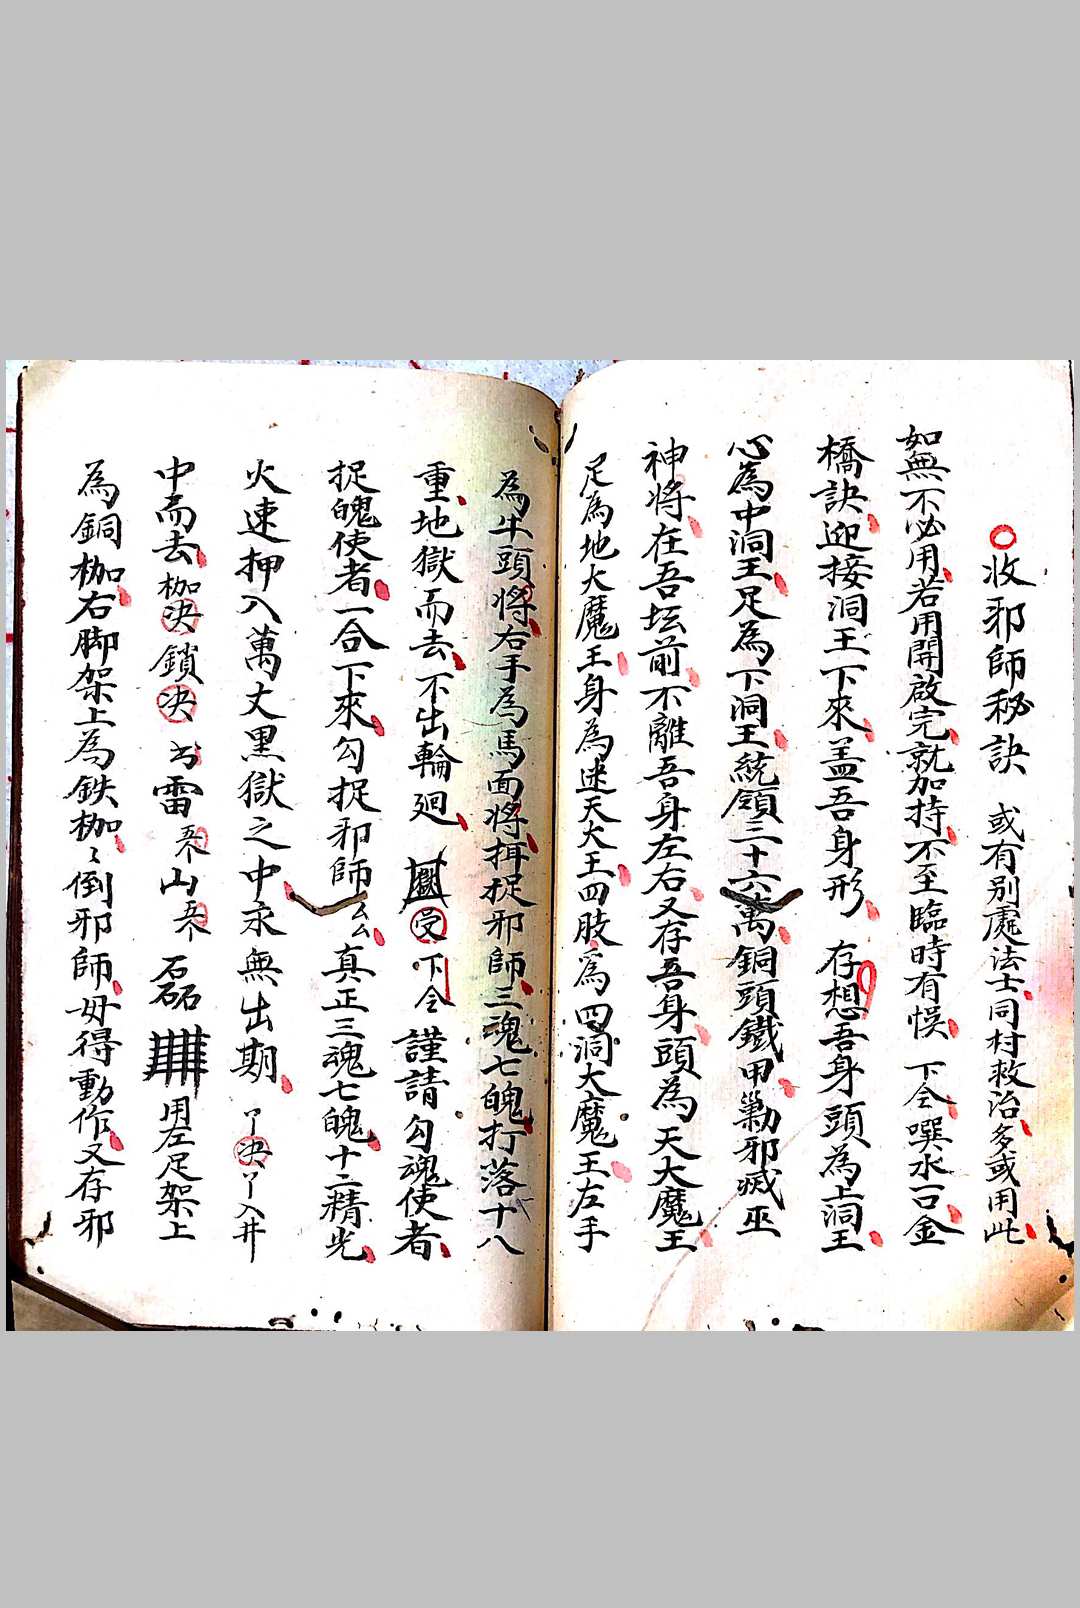 收邪師秘訣 或有别處法士同村救治多或用此
如無不必用若用開啟完就加持不至臨時有悮 下令噀水一口金
橋訣迎接洞王下來盖吾身形 存想吾身頭為上洞王
心為中洞王足為下洞王統領三十六萬銅頭鐵甲勦邪滅巫
神將在吾坛前不離吾身左右又存吾身頭為天大魔王
足為地大魔王身為迷天大王四肢為四洞大魔王左手
為牛頭將右手為馬面將揖捉邪師三魂七魄打落十八
重地獄而去不出輪廻 受下令謹請勾魂使者
捉魄使者一合下來勾捉邪師厶厶真正三魂七魄十二精光
火速押入萬丈黒獄之中永無出期 决入井
中而去枷决鎖决 雷山磊 用左足架上
為銅枷右脚架上為鉄枷〻倒邪師毋得動作又存邪